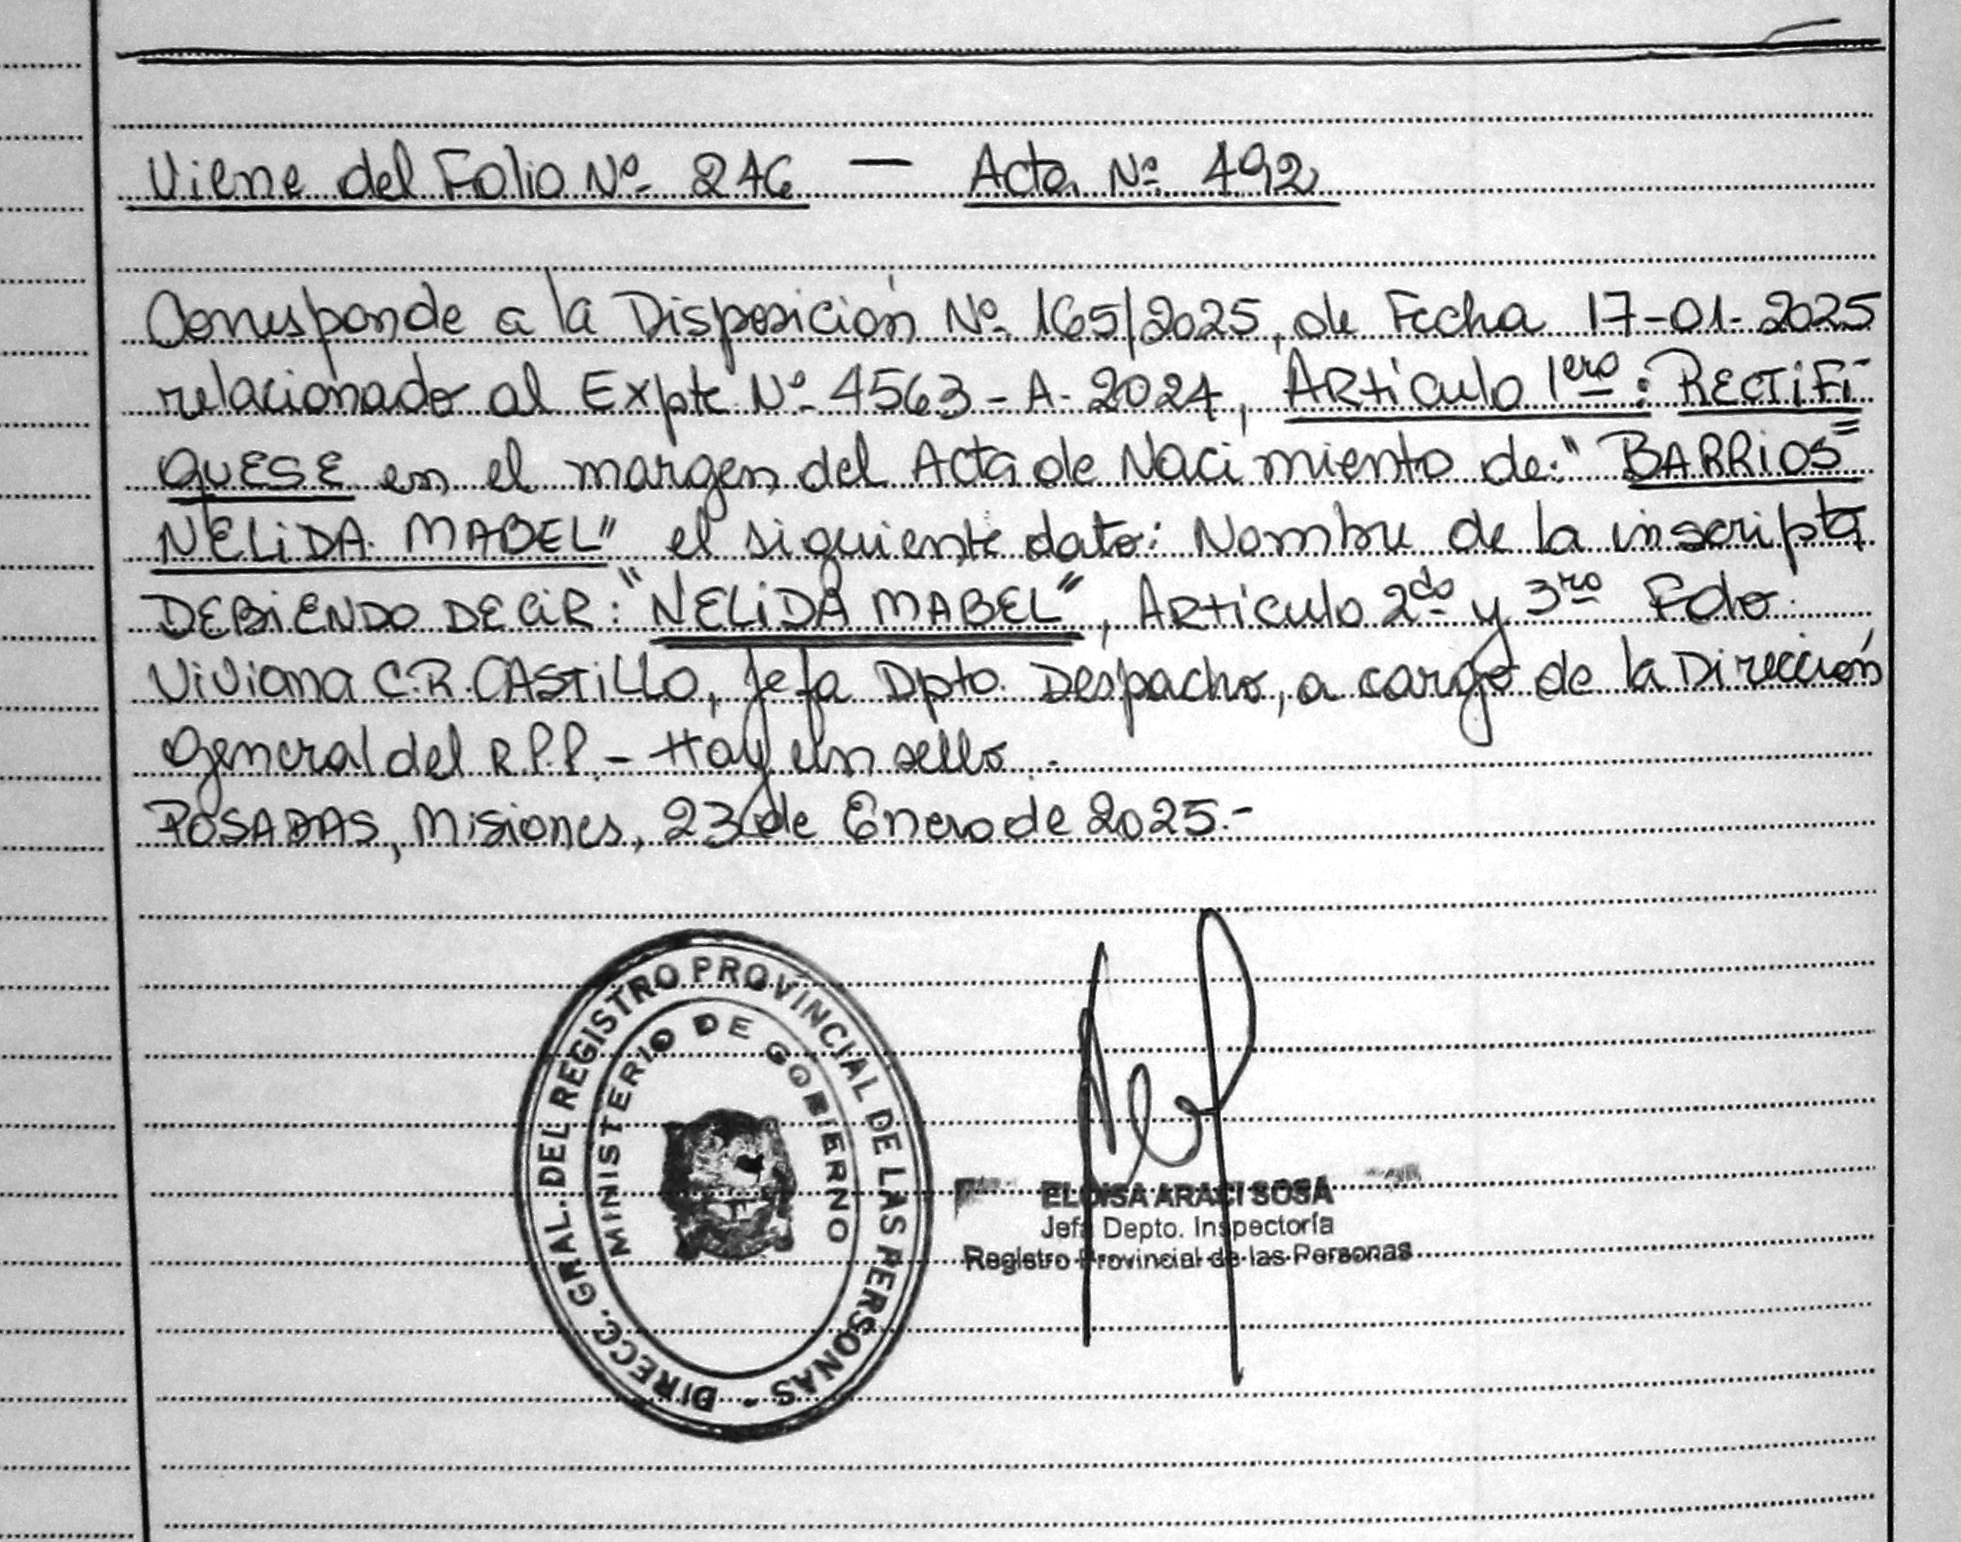 Viene del Folio Nº 246 — Acta Nº 492
Corresponde a la Disposición Nº 165/2025, de Fecha 17-01-2025
relacionado al Expte Nº 4563-A-2024, ARticulo 1ero: RECTIFI
QUESE en el margen del Acta de Nacimiento de: "BARRIOS
NELIDA MABEL" el siguiente dato: Nombre de la inscripta
DEBIENDO DECIR: "NELIDA MABEL", ARticulo 2do y 3ro Fdo.
Viviana C.R. CASTILLO, Jefa Dpto. Despacho, a cargo de la Dirección
General del R.P.P.- Hay un sello.-
POSADAS, Misiones, 23 de Enero de 2025.-
DIRECC. GRAL. DEL REGISTRO PROVINCIAL DE LAS PERSONAS -
MINISTERIO DE GOBIERNO
ELOISA ARACI SOSA
Jefa Depto. Inspectoría
Registro Provincial de las Personas